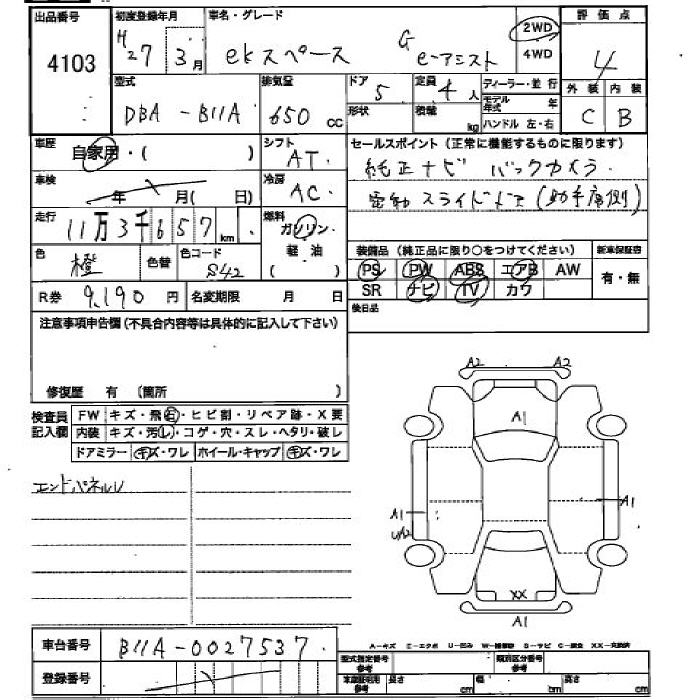 出品番号 初度登録年月 車名・グレード 2WD 評価点
4103 H27 3月 ekスペース G e-アシスト 4WD 4
型式 排気量 ドア 5 定員 4人 ディーラー・並行 外装 内装
DBA-B11A 650cc 形状 積載 kg モデル年式 年 C B
ハンドル 左・右
車歴 自家用・( ) シフト AT セールスポイント(正常に機能するものに限ります)
純正ナビ バックカメラ
車検 年 月( 日) 冷房 AC 電動スライドドア(助手席側)
走行 11万3千657km 燃料 ガソリン・軽油 ( )
色 橙 色替 色コード S42 装備品(純正品に限り○をつけてください) 新車保証書
PS PW ABS エアB AW 有・無
R券 9,190円 名変期限 月 日 SR ナビ TV カワ
後日品
注意事項申告欄(不具合内容等は具体的に記入して下さい)
修復歴 有 (箇所 )
検査員記入欄 FW キズ・飛石・ヒビ割・リペア跡・X要
内装 キズ・汚レ・コゲ・穴・スレ・ヘタリ・破レ
ドアミラー キズ・ワレ ホイール・キャップ キズ・ワレ
エンドパネルU
A2 A2
A1
A1 A1
U/A2
XX
A1
車台番号 B11A-0027537
登録番号
A-キズ E-エクボ U-凹ミ S-サビ XX-交換済
型式指定番号 類別区分番号
参考 参考
車庫証明用参考 長さ cm 幅 cm 高さ cm